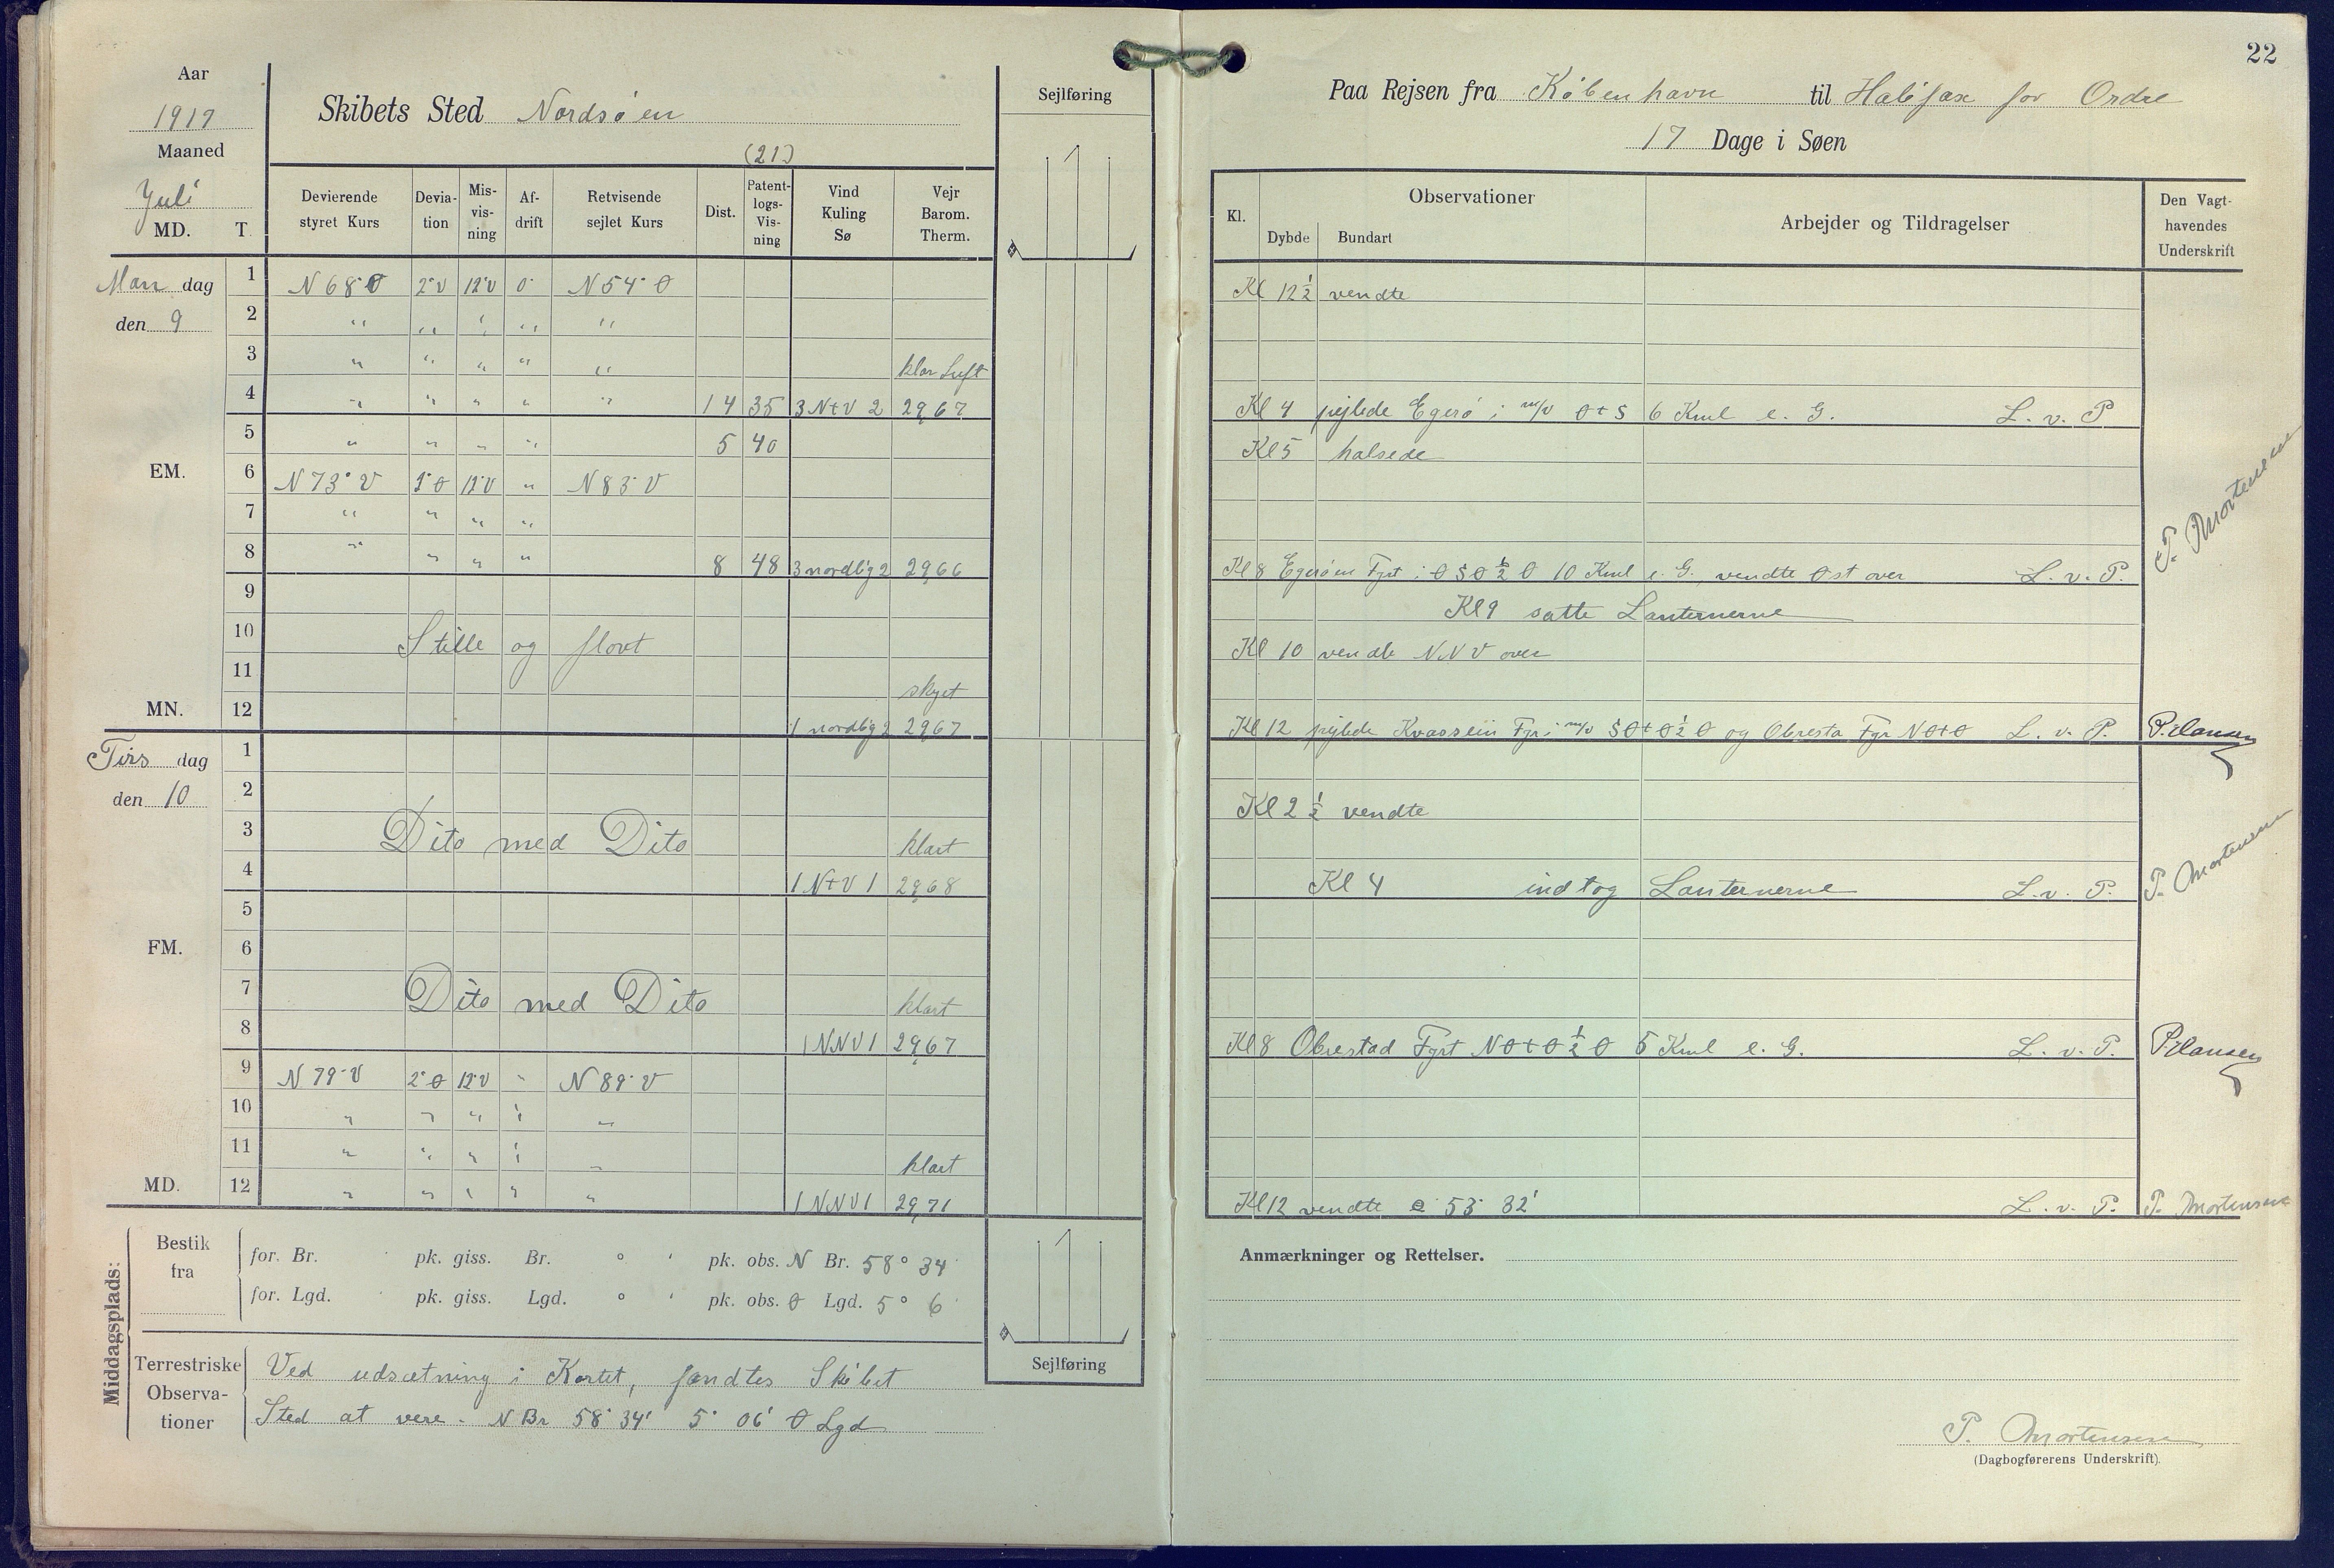 Aar
1917
Maaned
Juli
MD. T.
Skibets Sted Nordsøen
(21)
Devierende styret Kurs
Deviation
Misvisning
Afdrift
Retvisende sejlet Kurs
Dist.
Patentlogs-Visning
Vind Kuling Sø
Vejr Barom. Therm.
Sejlføring
Man dag
den 9
1 N 68° Ø 2°V 12°V 0° N 54° Ø
2 " " " " "
3 " " " " " klar Luft
4 " " " " " 14 35 3 N+V 2 29,67
5 " " " " 5 40
EM.
6 N 73° V 2°Ø 12°V " N 83° V
7 " " " "
8 " " " " 8 48 3 nordlig 2 29,66
9
10 Stille og flovt
11 skyet
MN. 12 1 nordlig 2 29,67
Tirs dag
den 10
1
2
3 Dito med Dito klart
4 1 N+V 1 29,68
5
FM. 6
7 Dito med Dito klart
8 1 NNV 1 29,67
9 N 79° V 2°Ø 12°V " N 89° V
10 " " " " "
11 " " " " " klart
MD. 12 " " " " " 1 NNV 1 29,71
Middagsplads:
Bestik fra
for. Br. ' pk. giss. Br. ° ' pk. obs. N Br. 58° 34'
for. Lgd. ' pk. giss. Lgd. ° ' pk. obs. Ø Lgd. 5° 6'
Terrestriske Observationer
Ved udsætning i Kortet, fandtes Skibet
Sted at være. N Br 58° 34' 5° 06' Ø Lgd
Sejlføring
22
Paa Rejsen fra København til Halifax for Ordre
17 Dage i Søen
Kl.
Observationer
Dybde Bundart
Arbejder og Tildragelser
Den Vagthavendes Underskrift
Kl 12½ vendte
Kl 4 pejlede Egerø i m/v Ø+S 6 Kml e. G. L. v. P
Kl 5 halsede
P. Mortensen
Kl 8 Egerøen Fyrt i ØSØ½Ø 10 Kml e. G. vendte Øst over L. v. P.
Kl 9 satte Lanternerne
Kl 10 vendte NNV over
Kl 12 pejlede Fyr i m/v SØ+Ø½Ø og Obresta Fyr NØ+Ø L. v. P. P. Hansen
Kl 2½ vendte
Kl 4 indtog Lanternerne L. v. P. P. Mortensen
Kl 8 Obrestad Fyrt NØ+Ø½Ø 5 Kml e. G. L. v. P. P. Hansen
Kl 12 vendte 53° 32' L. v. P. P. Mortensen
Anmærkninger og Rettelser.
P. Mortensen
(Dagbogførerens Underskrift).